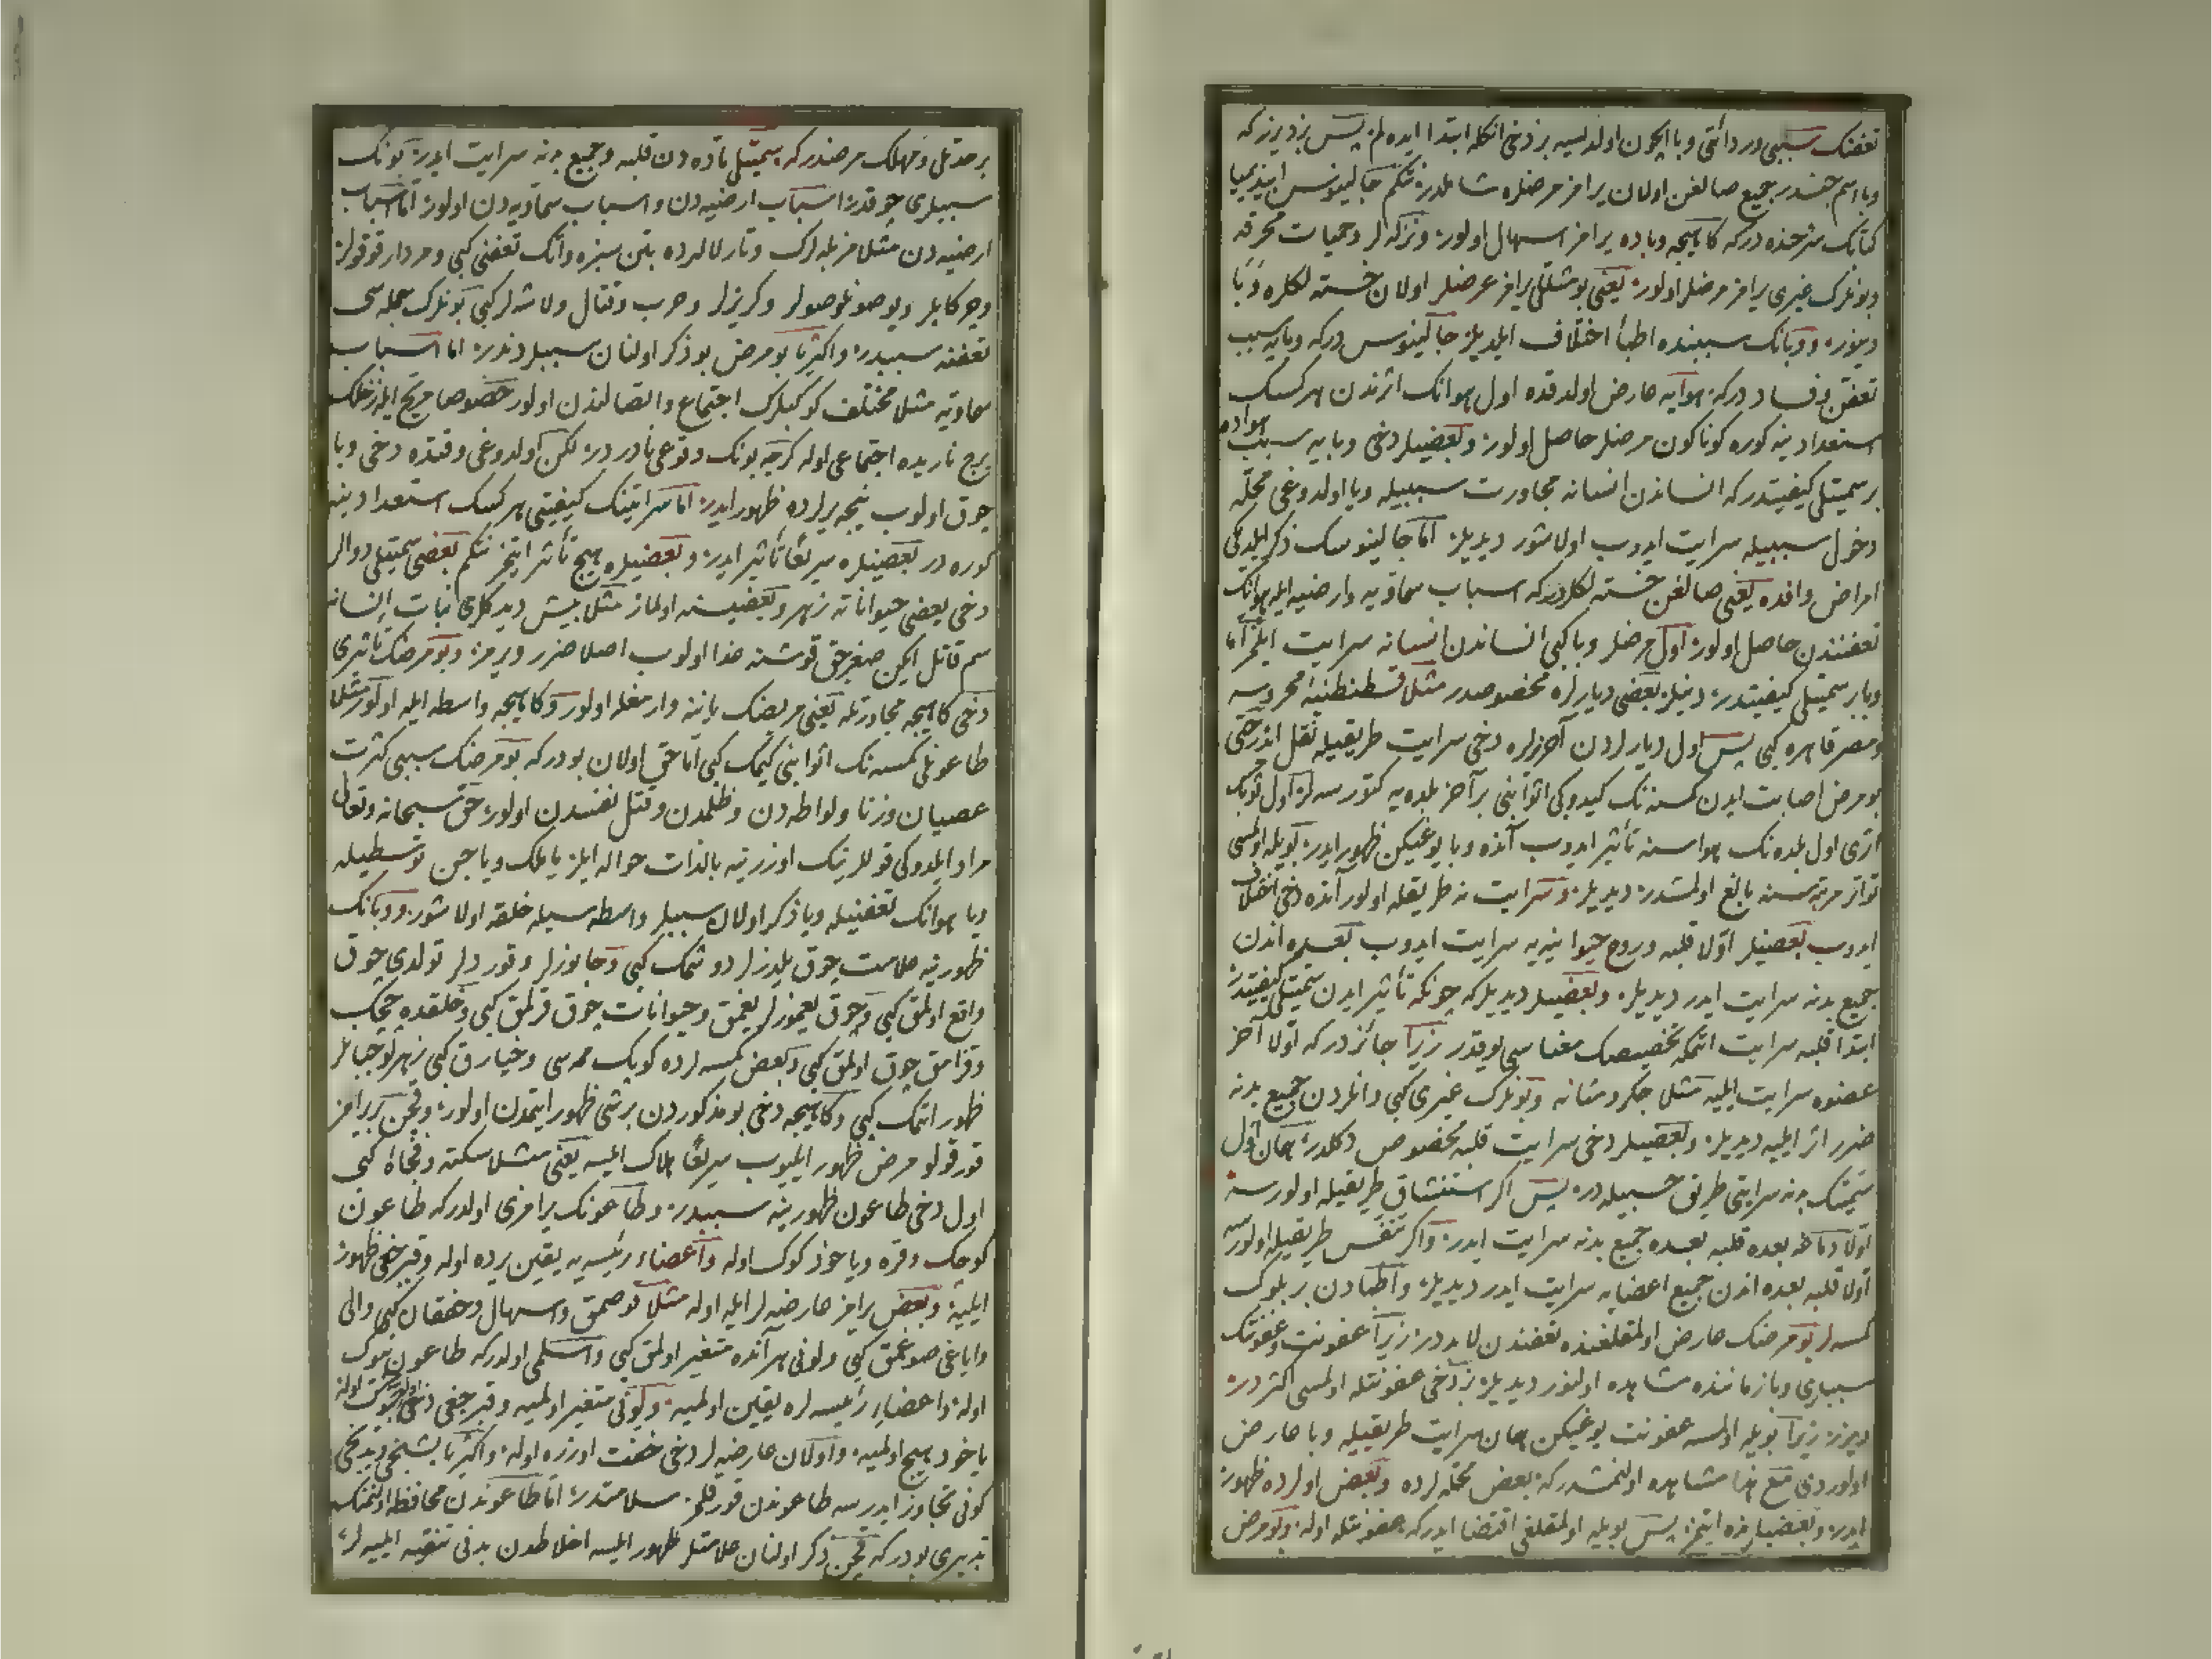 تعفنك سببى ورداءتى وبا ايچون اولديسه بز دخى انكله ابتدا ايده لم پس بز ديرز كه
وبا اسم جنسدر جميع صالغن اولان يرامز مرضلره شاملدر نتكم جالينوس ابيذيميا
كتابنك شرحنده دركه كاهيجه وباده يرامز اسهال اولور ونزله لر وحميات محرقه
وبونلرك غيرى يرامز مرضلر اولور يعنى بو مثللى يرامز عرضلر اولان خسته لكلره وبا
دينور ووبانك سببنده اطبا اختلاف ايلديلر جالينوس دركه وبايه سبب
تعفن وفساد دركه هوايه عارض اولدقده اول هوانك اثرندن هر كسك
استعدادينه كوره كوناكون مرضلر حاصل اولور وبعضيلر دخى وبايه سبب هواده
بر سميتلى كيفيتدركه انساندن انسانه مجاورت سببيله وبا اولدوغى محله
دخول سببيله سرايت ايدوب اولاشور ديديلر اما جالينوسك ذكر ايلديكى
امراض وافده يعنى صالغن خسته لكلردركه اسباب سماويه وارضيه ايله هوانك
تعفنندن حاصل اولور اول مرضلر وبا كبى انساندن انسانه سرايت ايلمز اما
وبا بر سميتلى كيفيتدر دينلر بعضى ديارلره مخصوصدر مثلا قسطنطنيه محروسه
ومصر قاهره كبى پس اول ديارلردن آخرلره دخى سرايت طريقيله نقل ايدر حتى
بو مرض اصابت ايدن كمسنه نك كيدوكى اثوابنى بر آخر بلده يه كتورسه لر اول ثوبك
اثرى اول بلده نك هواسنه تأثير ايدوب آنده وبا يوغيكن ظهور ايدر بويله اولمسى
تواتر مرتبه سنه بالغ اولمشدر ديديلر وسرايت نه طريقله اولور آنده دخى اختلاف
ايدوب بعضيلر اولا قلبه وروح حيوانييه سرايت ايدوب بعده اندن
جميع بدنه سرايت ايدر ديديلر وبعضيلر ديديلركه چونكه تأثير ايدن سميتلى كيفيتدر
ابتدا قلبه سرايت اتمكه تخصيصك معناسى يوقدر زيرا جائزدركه اولا آخر
عضوه سرايت ايليه مثلا جكر ومثانه وبونلرك غيرى كبى وانلردن جميع بدنه
ضرر اثر ايليه ديديلر وبعضيلر دخى سرايت قلبه مخصوص دكلدر همان اول
سميتك بدنه سرايتى طريق حسبيله در پس اكر استنشاق طريقيله اولورسه
اولا دماغه بعده قلبه بعده جميع بدنه سرايت ايدر واكر تنفس طريقيله اولورسه
اولا قلبه بعده اندن جميع اعضايه سرايت ايدر ديديلر واطبادن بر بلوك
كمسه لر بو مرضك عارض اولمقلغنده تعفندن لابددر زيرا عفونت وعفونتك
سببلرى وبا زماننده مشاهده اولنور ديديلر بز دخى عفونتله اولمسى اكثردر
ديرز زيرا بويله اولمسه عفونت يوغيكن همان سرايت طريقيله وبا عارض
اولوردى مع هذا مشاهده اولنمشدركه بعض محله لرده وبعض اولرده ظهور
ايدر وبعضيلرنده ايتمز پس بويله اولمقلغى اقتضا ايدركه عفونتله اوله وبو مرض
بر حدتلى ومهلك مرضدركه سميتلى ماده دن قلبه وجميع بدنه سرايت ايدر بونك
سببلرى چوقدر اسباب ارضيه دن واسباب سماويه دن اولور اما اسباب
ارضيه دن مثلا مزبله لرك وتارلالرده بتن سبزه واتك تعفنى كبى ومردار قوقولر
وچركابلر ويوصونلو صولر وكريزلر وحرب وقتال ولاشه لر كبى بونلرك جمله سى
تعفنه سببدر واكثريا بو مرض بو ذكر اولنان سببلردندر اما اسباب
سماويه مثلا مختلف كوكبلرك اجتماع واتصالندن اولور خصوصا مريخ ايله زحلك
برج ناريده اجتماعى اوله كرچه بونك وقوعى نادردر لكن اولدوغى وقتده دخى وبا
چوق اولوب نيجه يرلرده ظهور ايدر اما سرايتنك كيفيتى هر كسك استعدادينه
كوره در بعضيلره سريعا تأثير ايدر وبعضيلره هيچ تأثير ايتمز نتكم بعضى سميتلى دوالر
دخى بعضى حيواناته زهر وبعضيسنه اولماز مثلا بيش ديدكلرى نبات انسانه
سم قاتل ايكن صغرجق قوشنه غذا اولوب اصلا ضرر ويرمز وبو مرضك تأثيرى
دخى كاهيجه مجاورتله يعنى مريضك ياننه وارمغله اولور وكاهيجه واسطه ايله اولور مثلا
طاعونلى كمسه نك اثوابنى كيمك كبى اما حق اولان بودركه بو مرضك سببى كثرت
عصيان وزنا ولواطه دن وظلمدن وقتل نفسدن اولور حق سبحانه وتعالى
مراد ايلدوكى قوللرينك اوزرينه بالذات حواله ايلر يا ملك ويا جن توسطيله
ويا هوانك تعفنيله ويا ذكر اولنان سببلر واسطه سيله خلقه اولاشور ووبانك
ظهورينه علامت چوق يلدزلر دوشمك كبى وجانورلر وقوردلر تولدى چوق
واقع اولمق كبى وچوق يغمورلر يغمق وحيوانات چوق قرلمق كبى وخلقده چيچك
وقزامق چوق اولمق كبى وبعض كمسه لرده كوپك ممه سى وخيارق كبى زهرلو چبانلر
ظهور اتمك كبى وكاهيجه دخى بو مذكوردن بر شى ظهور ايتمدن اولور وقچن بر يرامز
قورقولو مرض ظهور ايليوب سريعا هلاك ايلسه يعنى مثلا سكته وفجاه كبى
اول دخى طاعون ظهورينه سببدر وطاعونك يرامزى اولدركه طاعون
كوچك وقره وياخود كوك اوله واعضاء رئيسيه يه يقين يرده اوله وقبرجغى ظهور
ايليه وبعض يرامز عارضه لر ايله اوله مثلا قوصمق واسهال وخفقان كبى والى
واياغى صوغمق كبى ولونى هر آنده متغير اولمق كبى واسلمى اولدركه طاعون بيوك
اوله واعضاء رئيسه لره يقين اولميه ولونى متغير اولميه وقبرجغى دخى
ياخود هيچ اولميه واولان عارضه لر دخى خفت اوزره اوله واكثريا بشنجى ويديجى
كونى تجاوز ايدرسه طاعوندن قورقلمز سلامتدر اما طاعوندن محافظه اولنمنك
تدبيرى بودركه قچن ذكر اولنان علامتلر ظهور ايلسه اخلاطدن بدنى تنقيه ايليه لر